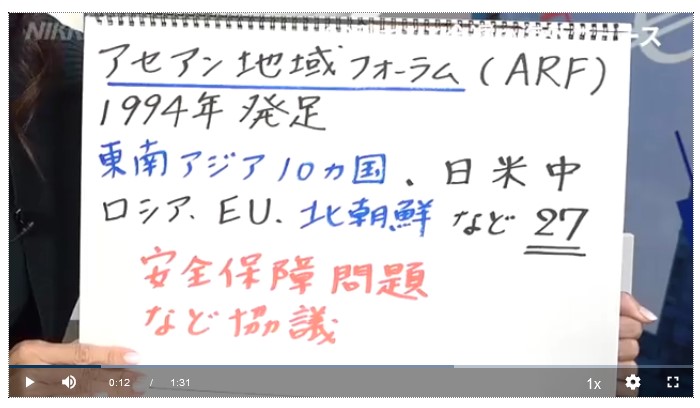 NIKK
ース
アセアン地域フォーラム(ARF)
1994年発足
東南アジア10ヵ国、日米中
ロシア、EU、北朝鮮など27
安全保障問題
など協議
0:12 / 1:31
1x